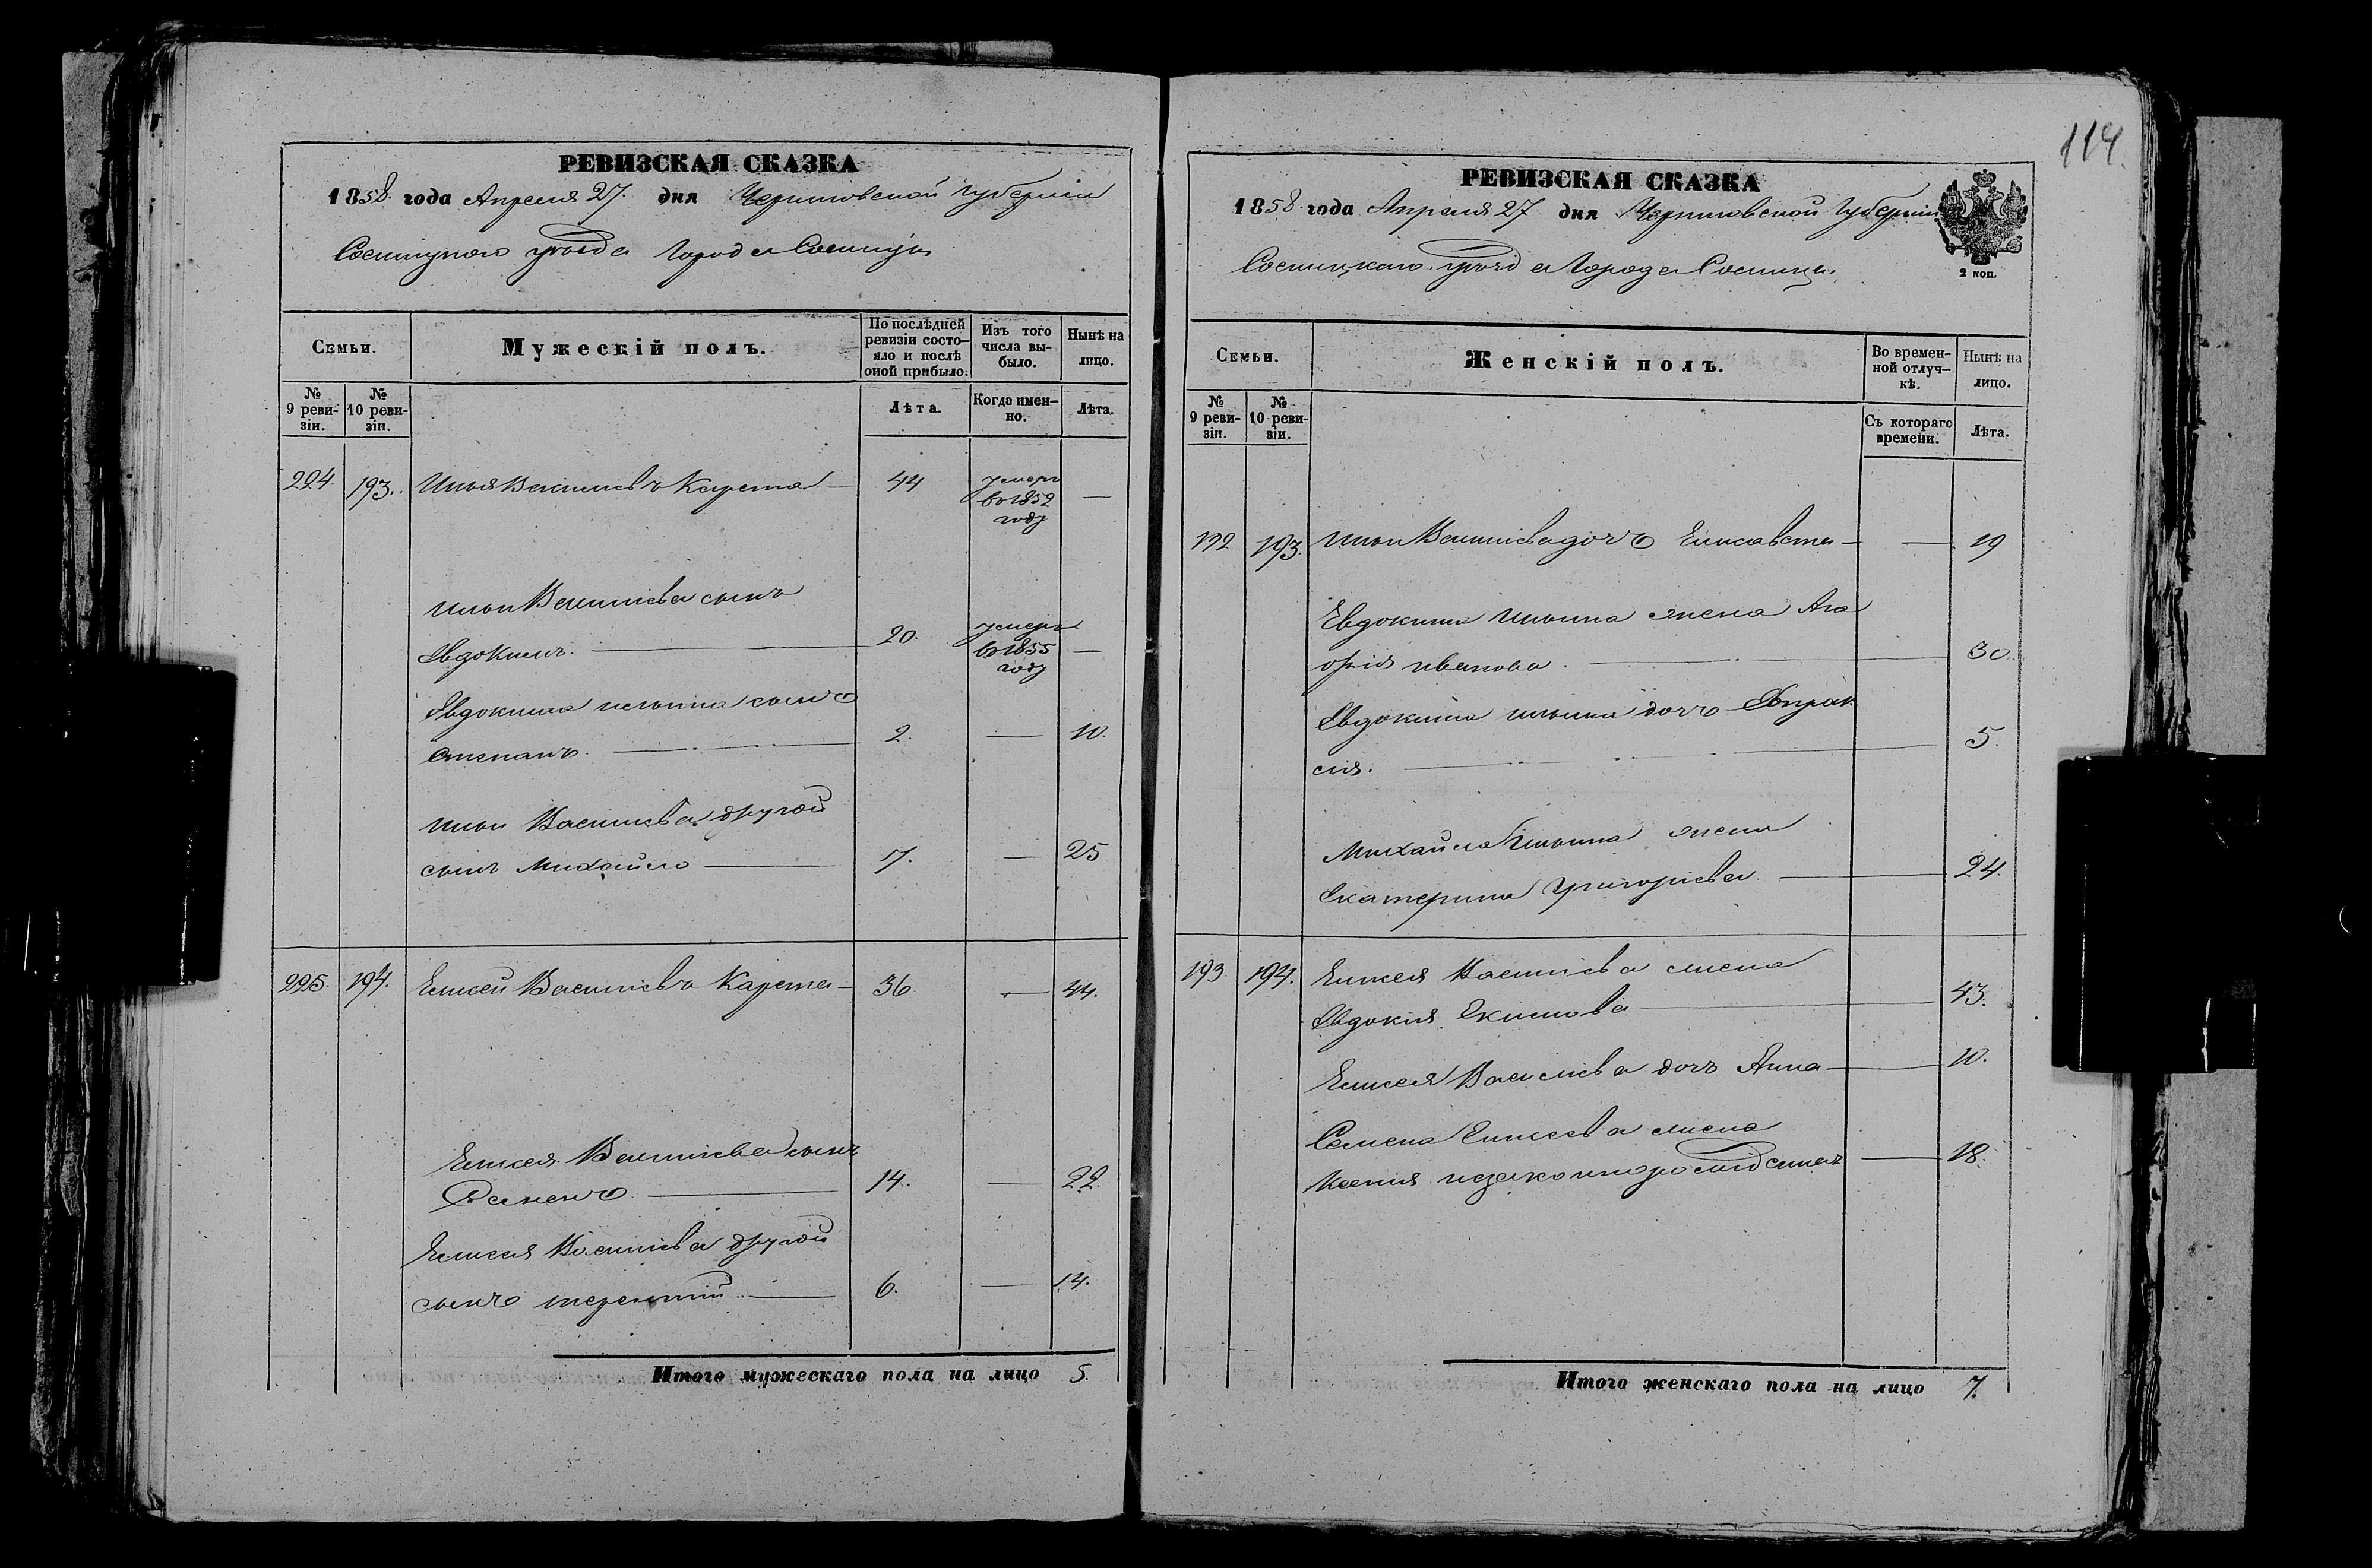 РЕВИЗСКАЯ СКАЗКА
1858 года Апреля 27. дня Черниговской губерніи
Сосницкого уезда Города Сосницы
Семьи.
Мужескій полъ.
По послѣдней ревизіи состо-
яло и послѣ
оной прибыло.
Изъ того
числа вы-
было.
Нынѣ на
лицо.
№
9 реви-
зіи.
№
10 реви-
зіи.
Лѣта.
Когда имен-
но.
Лѣта.
224. 193. Илья Васильевъ Карета 44 умеръ
въ 1852
году —
Ильи Васильева сынъ
Евдокимъ. 20. умеръ
въ 1855
году —
Евдокима ильина сынъ
Степанъ. 2. — 10.
Ильи Васильева другой
сынъ Михайло 17. — 25
225. 194. Елисей Васильевъ Карета 36 — 44.
Елисея Васильева сынъ
Семенъ 14. — 22.
Елисея Васильева другой
сынъ терентій 6. — 14.
Итого мужескаго пола на лицо 5.
114.
РЕВИЗСКАЯ СКАЗКА
1858 года Апреля 27 дня Черниговской Губерніи
Сосницкаго уезда Города Сосницы.
2 коп.
Семьи.
Женскій полъ.
Во времен-
ной отлуч-
кѣ.
Нынѣ на
лицо.
№
9 реви-
зіи.
№
10 реви-
зіи.
Съ котораго
времени.
Лѣта.
192 193. Ильи Васильева дочъ Елисавета — 19
Евдокима Ильина жена Ага
фія иванова. 30.
Евдокима ильина дочъ Евпрак
сія. 5.
Михайла Ильина жена
Екатерина Григорьева. 24.
193 194. Елисея Васильева жена
Евдокия Екимова 43.
Елисея Васильева дочъ Анна — 10.
Семена Елисеева жена
Ксения незаконнорожденная — 18.
Итого женскаго пола на лицо 7.